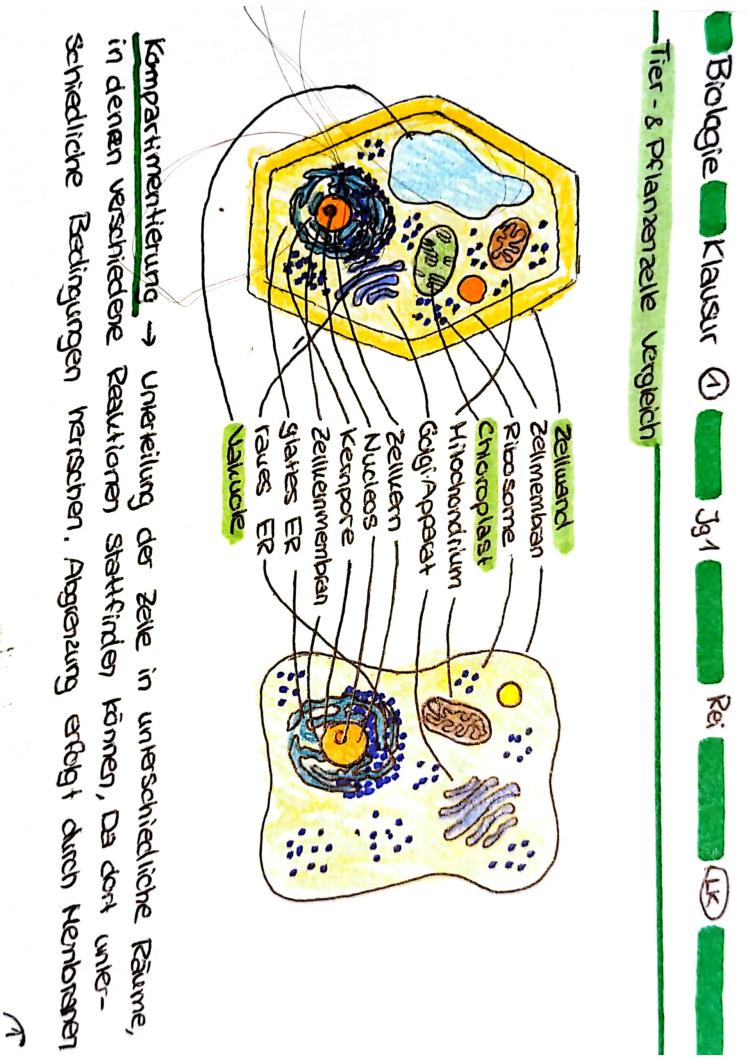 Biologie Klausur ① Jg1 Rei LK
Tier- & Pflanzenzelle vergleich
Zellwand
Zellmembran
Ribosome
Chloroplast
Mitochondrium
Golgi-Apparat
Zellkern
Nucleos
Kernpore
Zellkernmembran
glattes ER
raues ER
Vakuole
Kompartimentierung → Unterteilung der Zelle in unterschiedliche Räume,
in denen verschiedene Reaktionen stattfinden können, Da dort unter-
schiedliche Bedingungen herrschen. Abgrenzung erfolgt durch Membranen